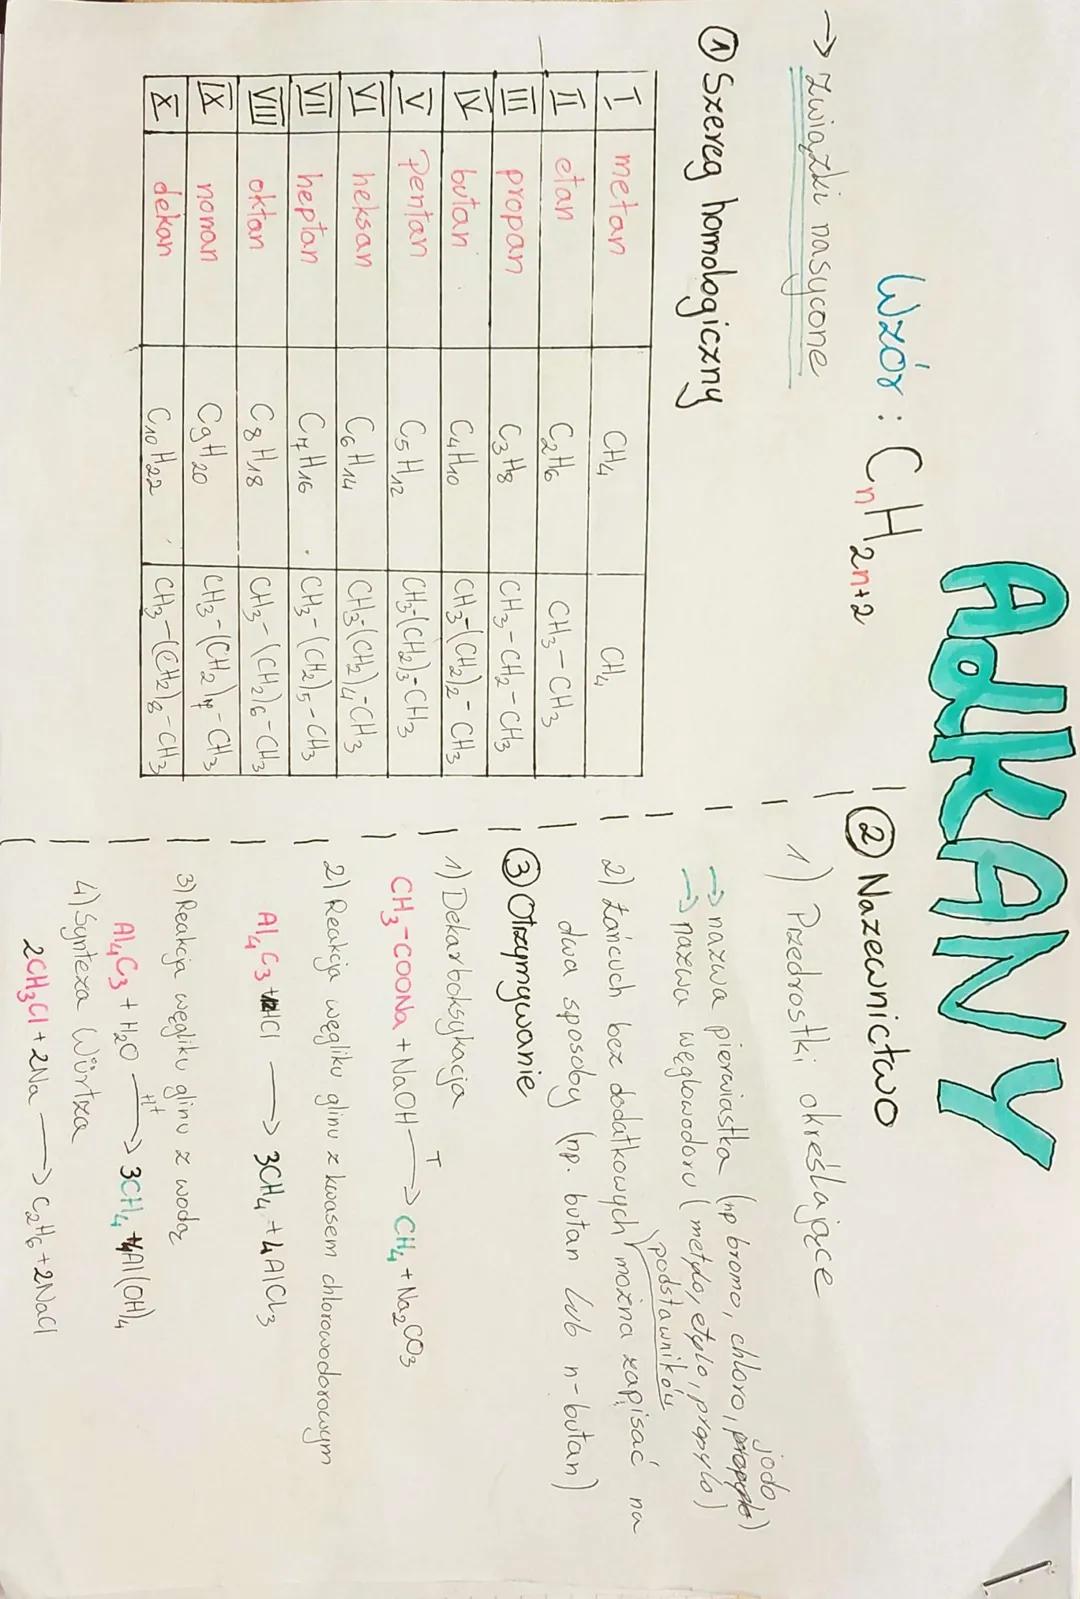 AdKANY
Wzór: CnH2n+2
→ związki nasycone
① Szereg homologiczny
I metan CH4 CH4
II etan C2H6 CH3-CH3
III propan C3H8 CH3-CH2-CH3
IV butan C4H10 CH3-(CH2)2-CH3
V Pentan C5H12 CH3(CH2)3-CH3
VI heksan C6H14 CH3-(CH2)4-CH3
VII heptan C7H16 CH3-(CH2)5-CH3
VIII oktan C8H18 CH3-(CH2)6-CH3
IX nonan C9H20 CH3-(CH2)7-CH3
X dekan C10H22 CH3-(CH2)8-CH3
② Nazewnictwo
1) Przedrostki określające
→ nazwa pierwiastka (np bromo, chloro, jodo)
→ nazwa węglowodoru (metylo, etylo, propylo)
2) Łańcuch bez dodatkowych podstawników można zapisać na
dwa sposoby (np. butan lub n-butan)
③ Otrzymywanie
1) Dekarboksykacja
CH3-COONa + NaOH T→ CH4 + Na2CO3
2) Reakcja węgliku glinu z kwasem chlorowodorowym
Al4C3 + 12HCl → 3CH4 + 4AlCl3
3) Reakcja węgliku glinu z wodą
Al4C3 + H2O H+→ 3CH4 + 4Al(OH)4
4) Synteza Würtza
2CH3Cl + 2Na → C2H6 + 2NaCl